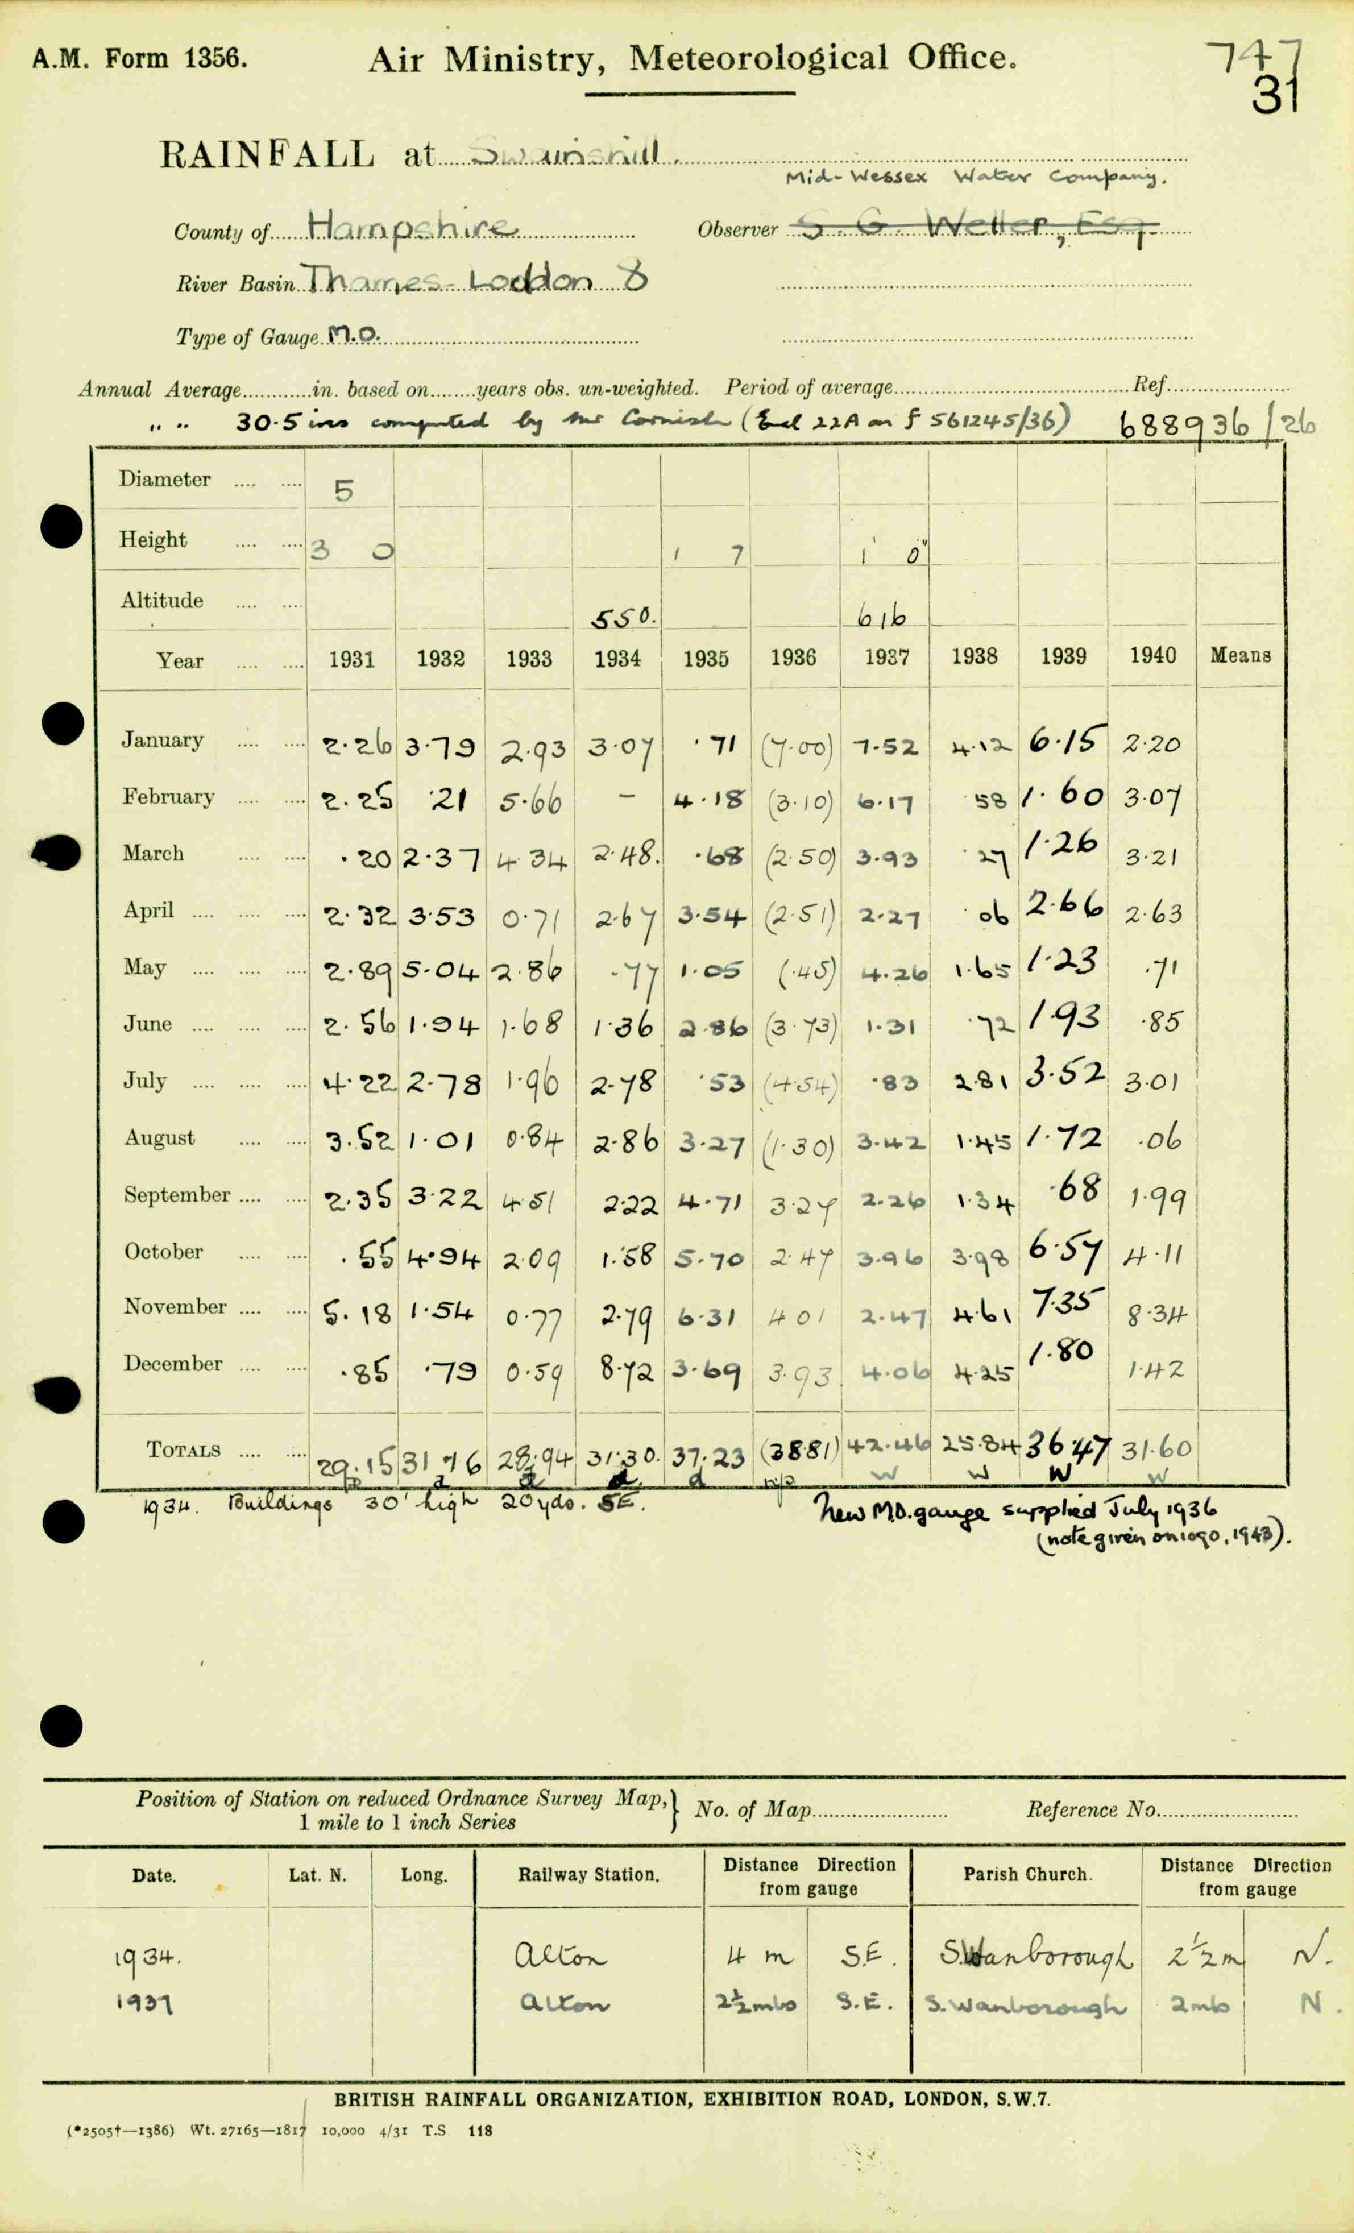 A.M. Form 1356. Air Ministry, Meteorological Office. 747
31
RAINFALL at Swainshill.
Mid-Wessex Water Company.
County of Hampshire Observer S. G. Weller, Esq.
River Basin Thames-Loddon 8
Type of Gauge M.O.
Annual Average in. based on years obs. un-weighted. Period of average Ref.
" " 30.5 ins computed by Mr Cornish (Encl 22A on f 561245/36) 688936/26
Diameter 5
Height 3 0 1 7 1' 0"
Altitude 550. 616
Year 1931 1932 1933 1934 1935 1936 1937 1938 1939 1940 Means
January 2.26 3.79 2.93 3.07 .71 (7.00) 7.52 4.12 6.15 2.20
February 2.25 .21 5.66 – 4.18 (3.10) 6.17 .58 1.60 3.07
March .20 2.37 4.34 2.48. .68 (2.50) 3.93 .27 1.26 3.21
April 2.32 3.53 0.71 2.67 3.54 (2.51) 2.27 .06 2.66 2.63
May 2.89 5.04 2.86 .77 1.05 (.45) 4.26 1.65 1.23 .71
June 2.56 1.94 1.68 1.36 2.86 (3.73) 1.31 .72 1.93 .85
July 4.22 2.78 1.96 2.78 .53 (4.54) .83 2.81 3.52 3.01
August 3.52 1.01 0.84 2.86 3.27 (1.30) 3.42 1.45 1.72 .06
September 2.35 3.22 4.51 2.22 4.71 3.27 2.26 1.34 .68 1.99
October .55 4.94 2.09 1.58 5.70 2.47 3.96 3.98 6.57 4.11
November 5.18 1.54 0.77 2.79 6.31 4.01 2.47 4.61 7.35 8.34
December .85 .79 0.59 8.72 3.69 3.93 4.06 4.25 1.80 1.42
TOTALS 29.15 31 16 28.94 31.30. 37.23 (38.81) 42.46 25.84 36.47 31.60
d d d d W W W W
1934. Buildings 30' high 20 yds. SE. New M.O. gauge supplied July 1936
(note given on 1090, 1943).
Position of Station on reduced Ordnance Survey Map,
1 mile to 1 inch Series } No. of Map Reference No.
Date. Lat. N. Long. Railway Station. Distance Direction from gauge Parish Church. Distance Direction from gauge
1934. Alton 4 m S.E. S.Wanborough 2½m N.
1937 Alton 2½mls S.E. S.Wanborough 2mls N.
BRITISH RAINFALL ORGANIZATION, EXHIBITION ROAD, LONDON, S.W.7.
(*2505†—1386) Wt. 27165—1817 10,000 4/31 T.S. 118